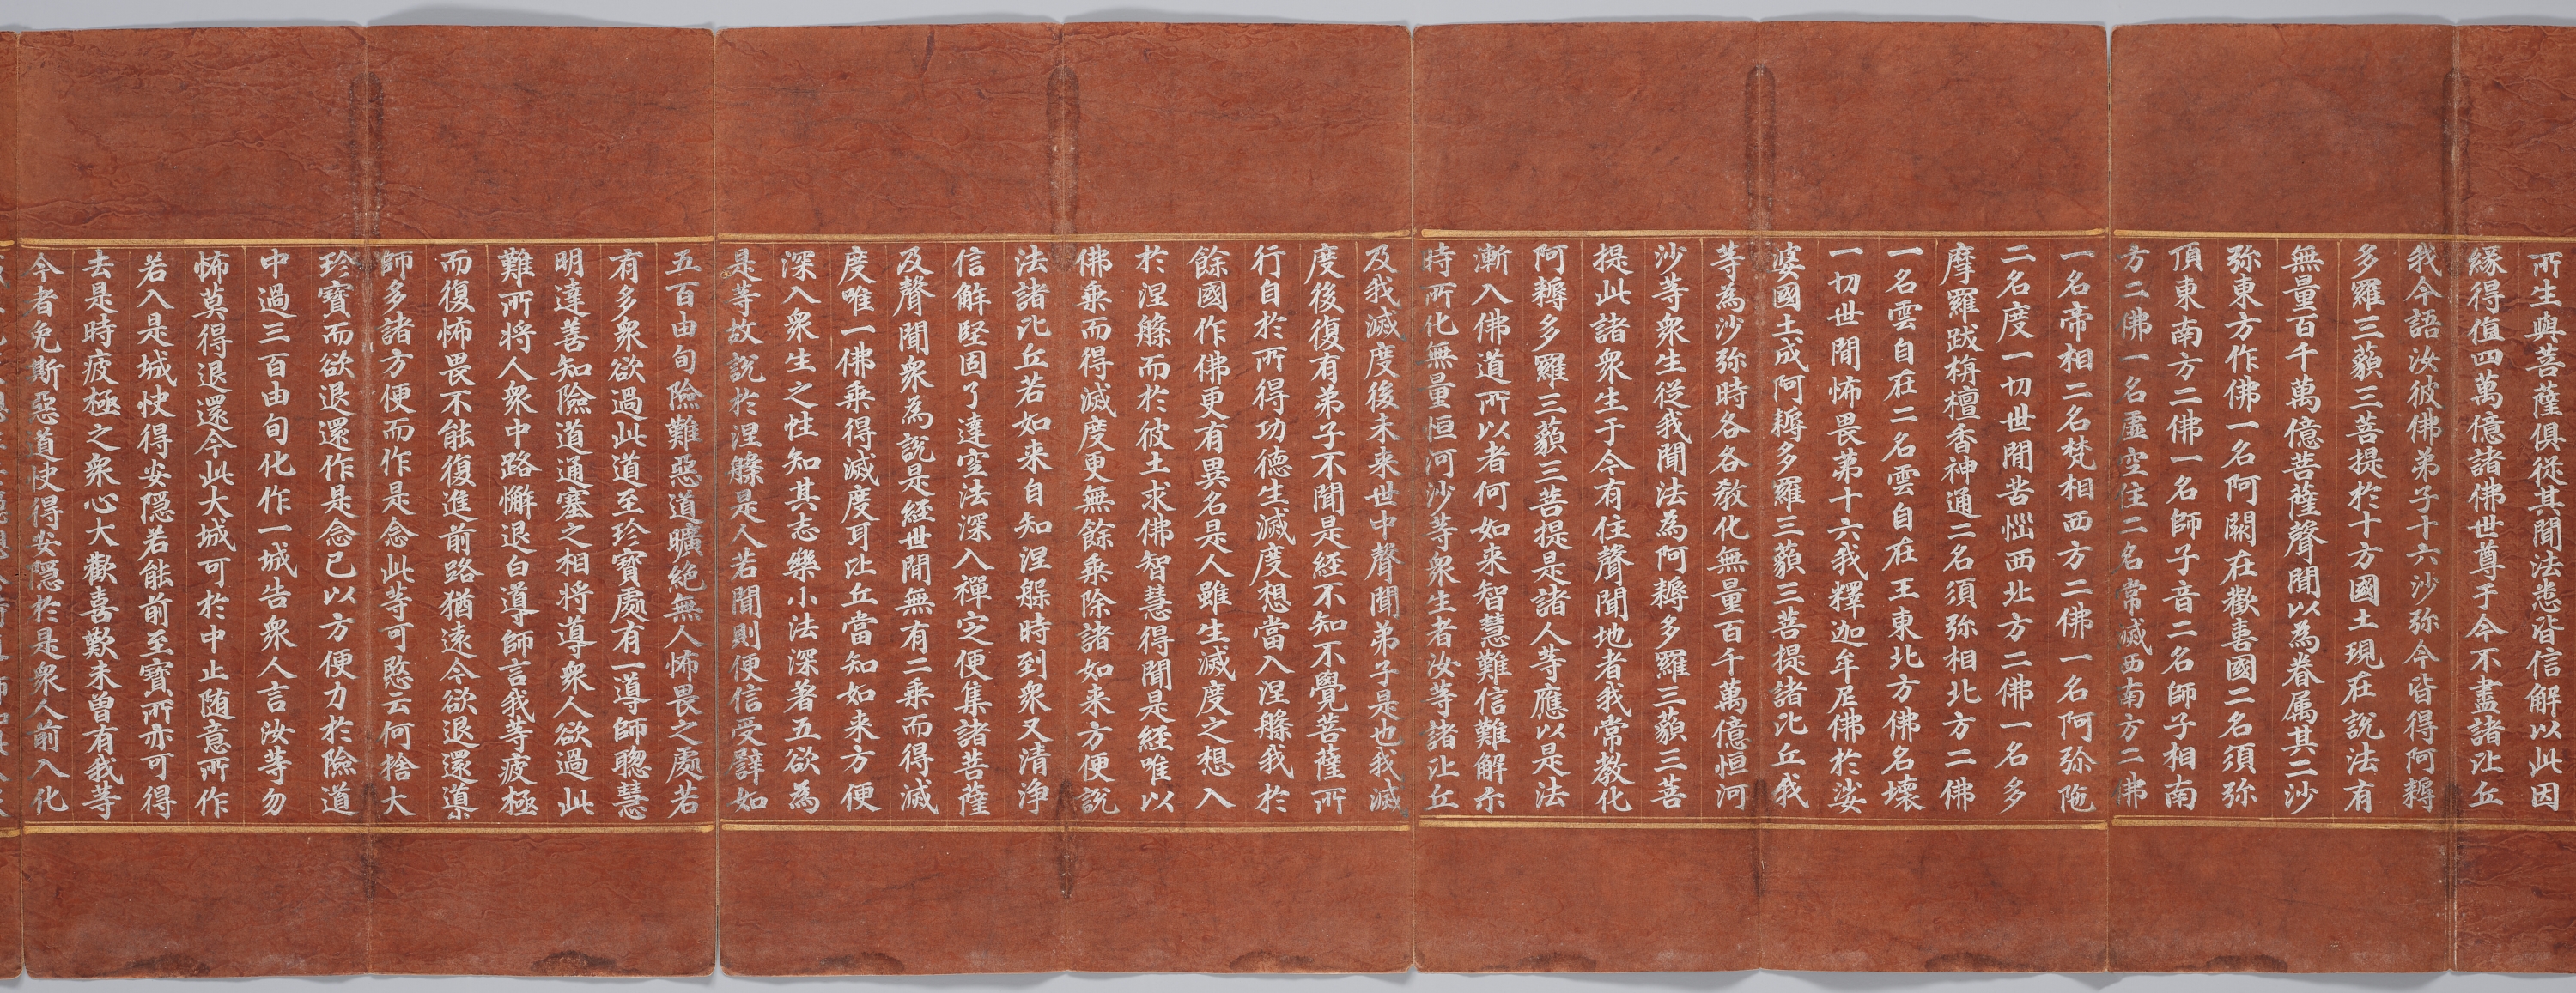 所生與菩薩俱從其聞法悉皆信解以此因
緣得值四萬億諸佛世尊于今不盡諸比丘
我今語汝彼佛弟子十六沙弥今皆得阿耨
多羅三藐三菩提於十方國土現在說法有
無量百千萬億菩薩聲聞以為眷属其二沙
弥東方作佛一名阿閦在歡喜國二名須弥
頂東南方二佛一名師子音二名師子相南
方二佛一名虛空住二名常滅西南方二佛
一名帝相二名梵相西方二佛一名阿弥陁
二名度一切世間苦惱西北方二佛一名多
摩羅跋栴檀香神通二名須弥相北方二佛
一名雲自在二名雲自在王東北方佛名壞
一切世間怖畏第十六我釋迦牟尼佛於娑
婆國土成阿耨多羅三藐三菩提諸比丘我
等為沙弥時各各教化無量百千萬億恒河
沙等衆生從我聞法為阿耨多羅三藐三菩
提此諸衆生于今有住聲聞地者我常教化
阿耨多羅三藐三菩提是諸人等應以是法
漸入佛道所以者何如来智慧難信難解尒
時所化無量恒河沙等衆生者汝等諸比丘
及我滅度後未来世中聲聞弟子是也我滅
度後復有弟子不聞是経不知不覺菩薩所
行自於所得功德生滅度想當入涅槃我於
餘國作佛更有異名是人雖生滅度之想入
於涅槃而於彼土求佛智慧得聞是経唯以
佛乘而得滅度更無餘乘除諸如来方便說
法諸比丘若如来自知涅槃時到衆又清浄
信解堅固了達空法深入禪定便集諸菩薩
及聲聞衆為說是経世間無有二乘而得滅
度唯一佛乘得滅度耳比丘當知如来方便
深入衆生之性知其志樂小法深著五欲為
是等故說於涅槃是人若聞則便信受譬如
五百由旬險難惡道曠絶無人怖畏之處若
有多衆欲過此道至珍寶處有一導師聰慧
明達善知險道通塞之相將導衆人欲過此
難所将人衆中路懈退白導師言我等疲極
而復怖畏不能復進前路猶遠今欲退還導
師多諸方便而作是念此等可愍云何捨大
珍寶而欲退還作是念已以方便力於險道
中過三百由旬化作一城告衆人言汝等勿
怖莫得退還今此大城可於中止随意所作
若入是城快得安隠若能前至寶所亦可得
去是時疲極之衆心大歡喜歎未曽有我等
今者免斯惡道快得安隠於是衆人前入化